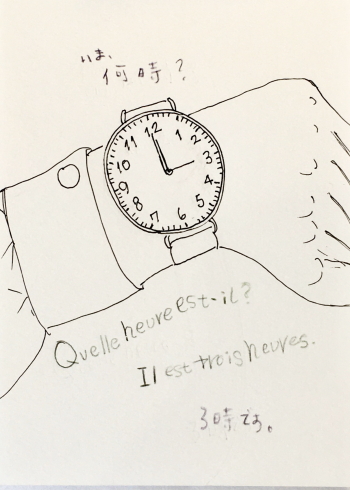 いま、
何時?
12
1
2
3
4
5
6
7
8
9
10
11
Quelle heure est-il?
Il est trois heures.
3時です。